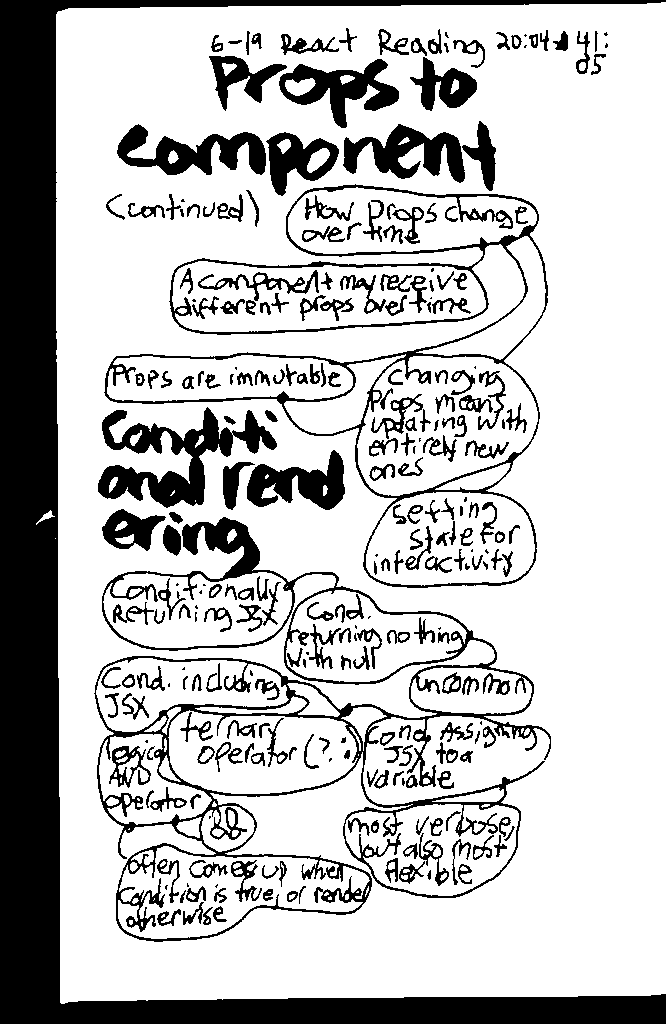 6-19 React Reading 20:04- 41:
05
Props to
component
(continued)
How Props change
over time
A component may receive
different props over time
Props are immutable
changing
Props means
updating with
entirely new
ones
setting
state for
interactivity
Conditi
onal rend
ering
Conditionally
Returning JSX
Cond.
returning nothing
with null
uncommon
Cond. including
JSX
ternary
operator (?:)
Cond. Assigning
JSX to a
variable
logical
AND
operator
&&
most verbose,
but also most
flexible
often comes up when
condition is true, or render
otherwise